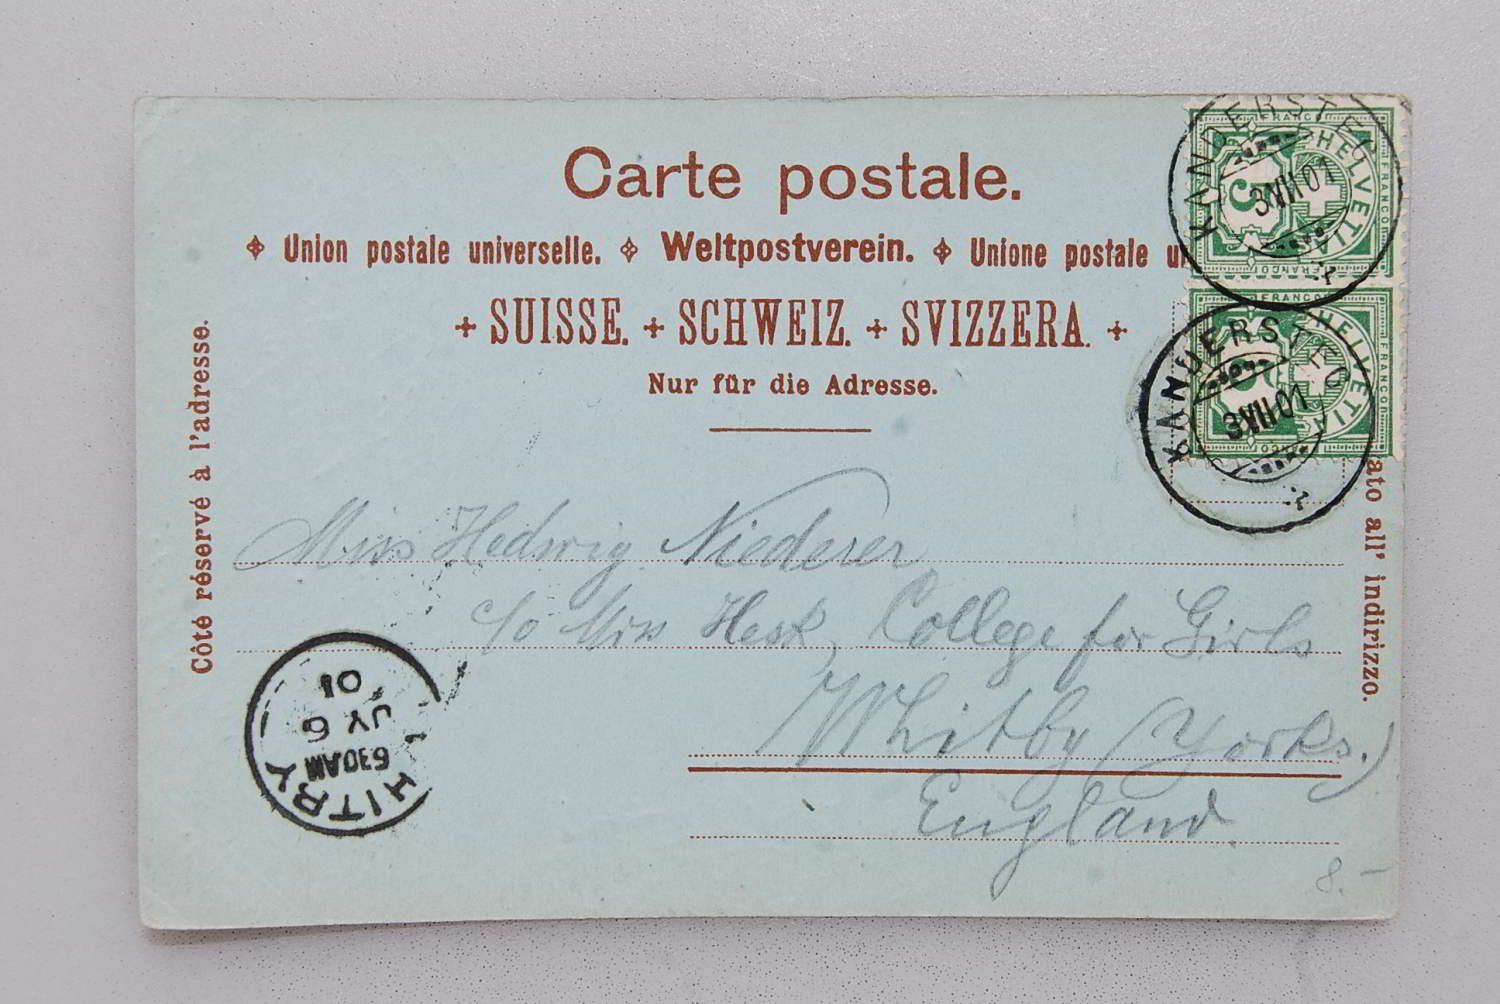 Carte postale.
Union postale universelle. Weltpostverein. Unione postale
SUISSE. SCHWEIZ. SVIZZERA.
Nur für die Adresse.
Côté réservé à l'adresse.
ato all' indirizzo.
FRANCO HELVETIA 5
FRANCO HELVETIA 5
KANDERSTEG
3 VII 01
KANDERSTEG
3 VII 01
Miss Hedwig Niederer
c/o Miss Hesk, College for Girls
Whitby (Yorks.)
England.
HITBY
630AM
JY 6
01
8.-